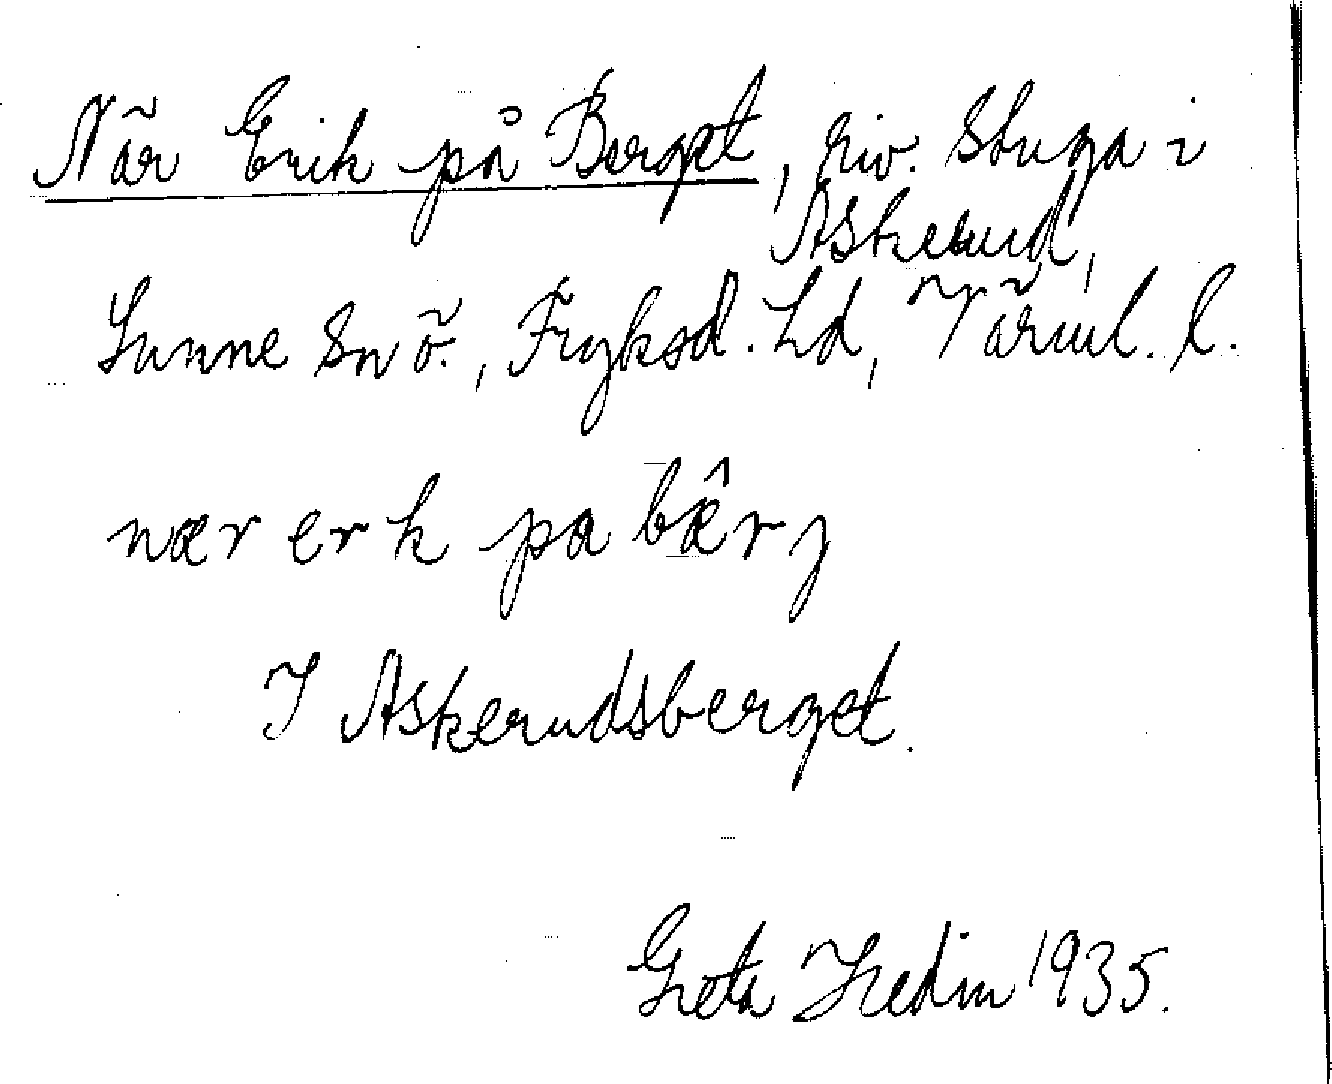 När Erik på Berget, riv. Stuga i
Askerud,
Sunne Snö., Fryksd. Hd, Värml. l.
nær erk pa bæ̂rj
I Askerudsberget.
Greta Hedin 1935.